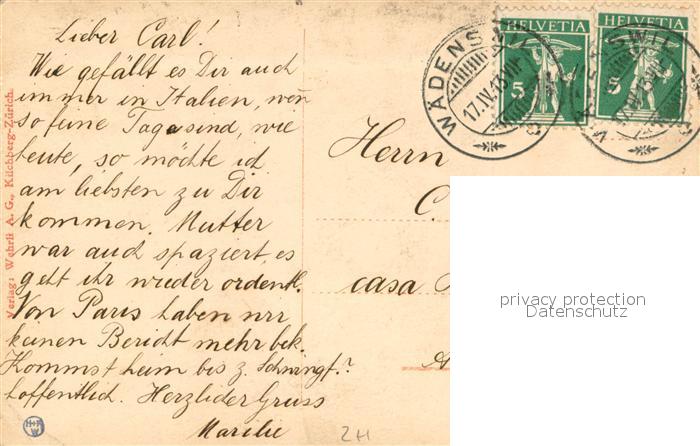 Lieber Carl!
Wie gefällt es Dir auch
immer in Italien, wen̄
so feine Tage sind, wie
heute, so möchte ich
am liebsten zu Dir
kommen. Mutter
war auch spaziert, es
geht ihr wieder ordentl.
Von Paris haben wir
keinen Bericht mehr bek.
Kommst heim bis z.
hoffentlich. Herzlicher Gruss
Verlag: Wehrli A. G., Kilchberg-Zürich.
HELVETIA
HELVETIA
5
5
WÄDENSWIL
17.IV.13
Herrn
C.
casa
privacy protection
Datenschutz
2H